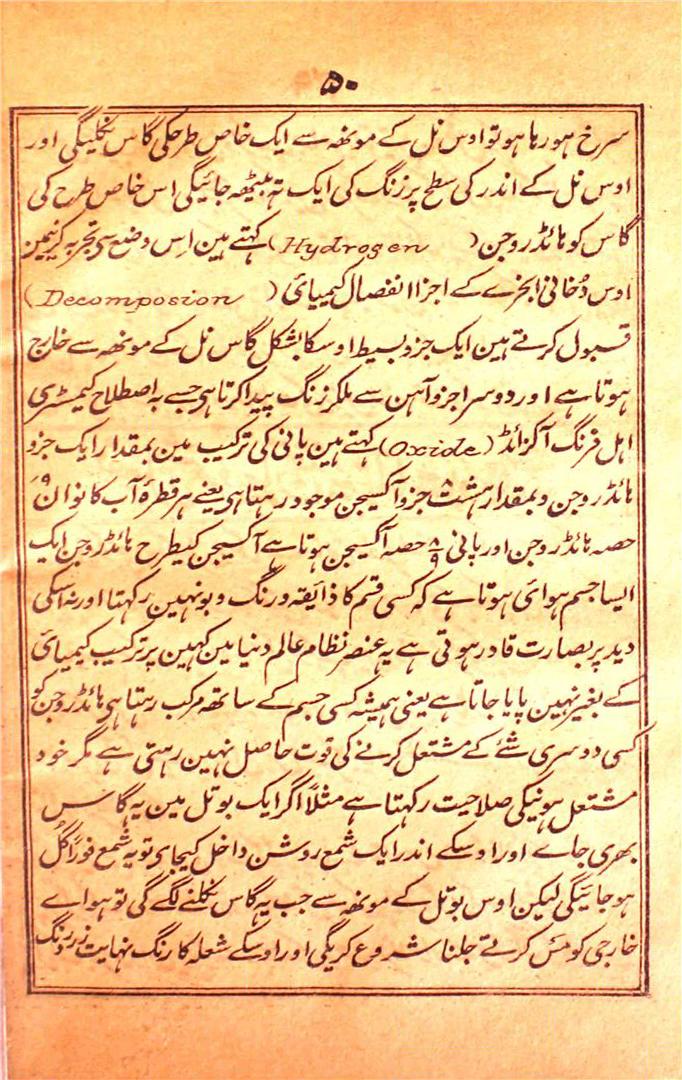 ۵۰
سرخ ہو رہا ہو تو اوس نل کے مونھہ سے ایک خاص طرحکی گاس نکلیگی اور
اوس نل کے اندر کی سطح پر زنگ کی ایک تہ بیٹھہ جائیگی اس خاص طرح کی
گاس کو ہائڈروجن (Hydrogen) کہتے ہین اس وضع سی تجربہ کرنیمین
اوس دُخانی ابخرے کے اجزا انفصال کیمیائی (Decomposion)
قبول کرتے ہین ایک جزو بسیط اوسکا بشکل گاس نل کے مونھہ سے خارج
ہوتا ہے اور دوسرا جزو آہن سے ملکر زنگ پیدا کرتا ہی جسے بہ اصطلاح کیمسٹری
اہل فرنگ آگزائڈ (Oxide) کہتے ہین پانی کی ترکیب مین بمقدار ایک جزو
ہائڈروجن و بمقدار ہشت ۸ جزو آکسیجن موجود رہتا ہی یعنے ہر قطرۂ آب کا نوان ۹؍
حصہ ہائڈروجن اور پانی ۸/۹ حصہ آکسیجن ہوتا ہے آکسیجن کیطرح ہائڈروجن ایک
ایسا جسم ہوائی ہوتا ہے کہ کسی قسم کا ذائقہ و رنگ و بو نہین رکہتا اور نہ اسکی
دید پر بصارت قادر ہوتی ہے یہ عنصر نظام عالم دنیا مین کہین پر ترکیب کیمیای
کے بغیر نہین پایا جاتا ہے یعنی ہمیشہ کسی جسم کے ساتھہ مرکب رہتا ہی ہائڈروجن کو
کسی دوسری شئے کے مشتعل کرنے کی قوت حاصل نہین رہتی ہے مگر خود
مشتعل ہونیکی صلاحیت رکہتا ہے مثلاً اگر ایک بوتل مین یہ گاس
بھری جاے اور اوسکے اندر ایک شمع روشن داخل کیجاے تو یہ شمع فوراً گُل
ہو جائیگی لیکن اوس بوتل کے مونھہ سے جب یہ گاس نکلنے لگے گی تو ہواے
خارجی کو مَس کرتے جلنا شروع کریگی اور اوسکے شعلہ کا رنگ نہایت زرد رنگ